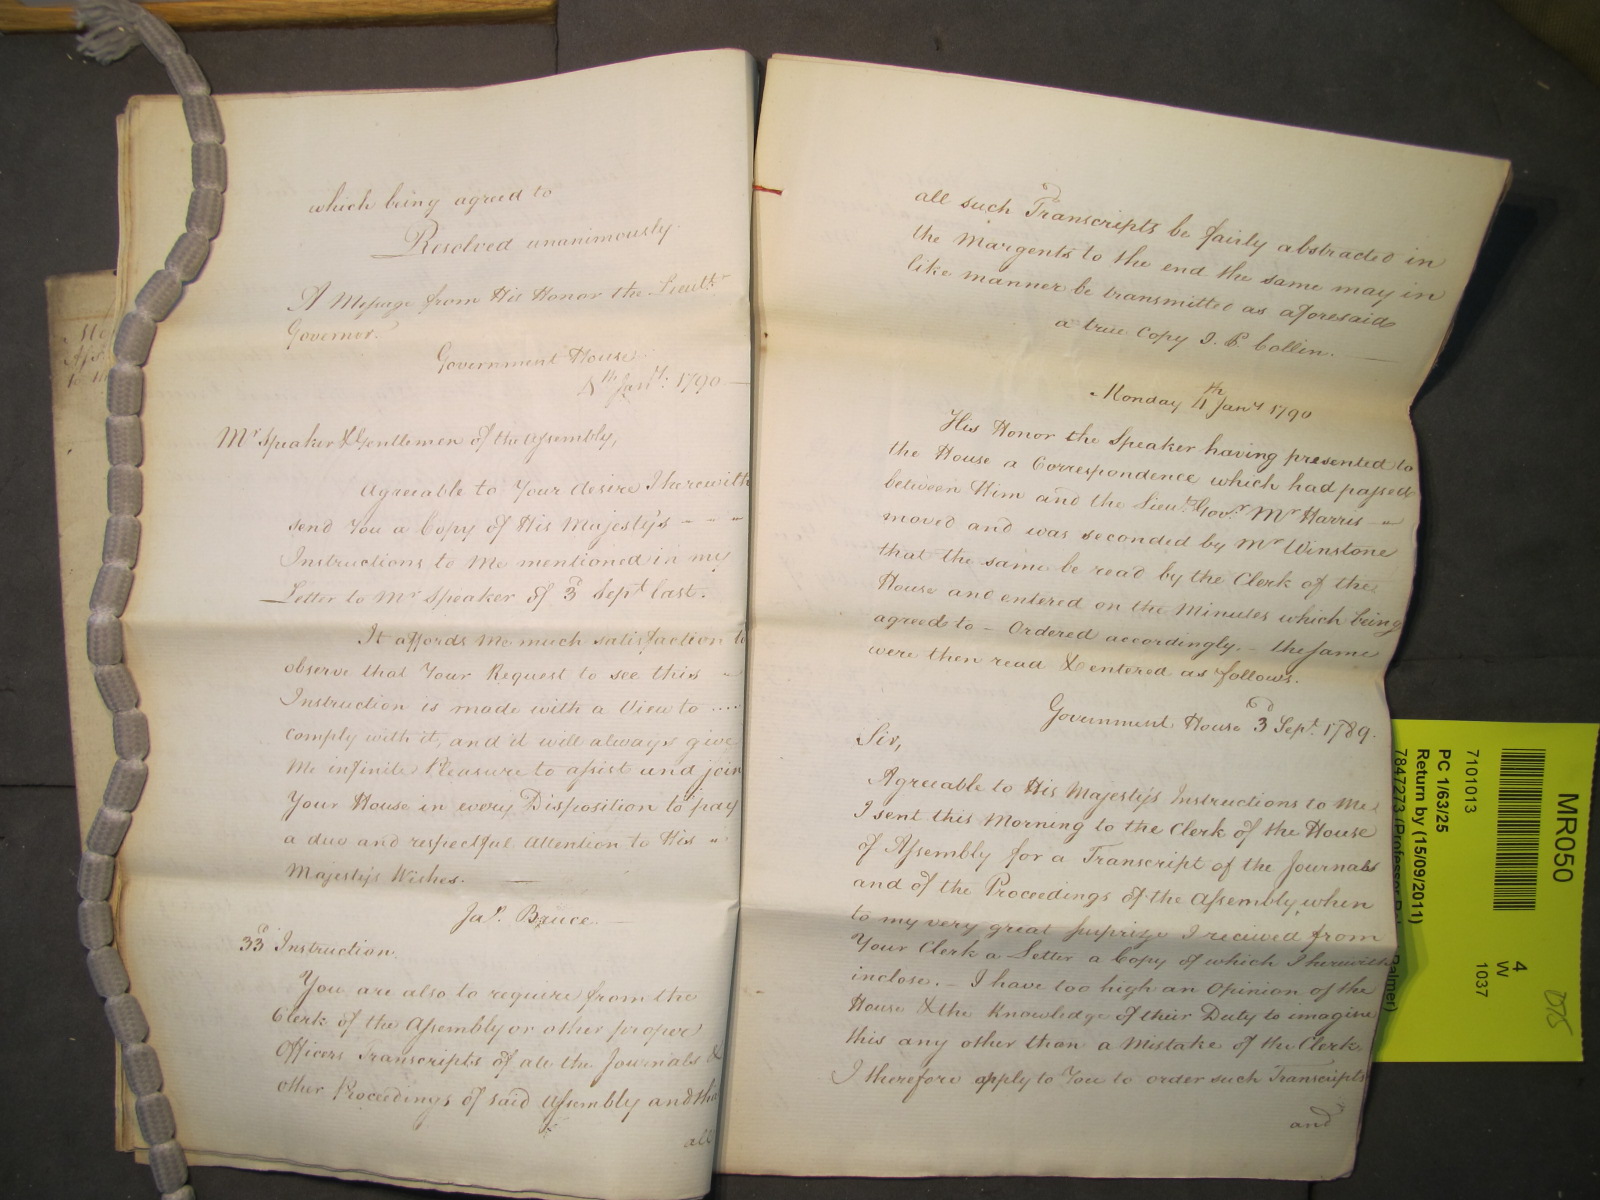 which being agreed to
Resolved unanimously.
A Message from His Honor the Lieutt.
Governor.
Government House.
8th Jany. 1790
Mr Speaker & Gentlemen of the Assembly,
Agreeable to Your desire I herewith
send You a Copy of His Majesty's
Instructions to Me mentioned in my
Letter to Mr Speaker of 3d Sept last.
It affords Me much satisfaction to
observe that Your Request to see this
Instruction is made with a View to ....
comply with it, and it will always give
Me infinite Pleasure to assist and join
Your House in every Disposition to pay
a due and respectful Attention to His
Majesty's Wishes.
Jas. Bruce
33d Instruction.
You are also to require from the
Clerk of the Assembly or other proper
Officers Transcripts of all the Journals &
other Proceedings of said Assembly and tha
all
all such Transcripts be fairly abstracted in
the Margents to the end the same may in
like manner be transmitted as aforesaid
a true Copy J. P. Collin.
Monday 11th Jany 1790
His Honor the Speaker having presented to
the House a Correspondence which had passed
between Him and the Lieut. Govr. Mr Harris
moved and was seconded by Mr Winstone
that the same be read by the Clerk of the
House and entered on the Minutes which being
agreed to - Ordered accordingly. - the same
were then read & entered as follows.
Government House 3d Sept. 1789.
Sir,
Agreeable to His Majesty's Instructions to Me
I sent this Morning to the Clerk of the House
of Assembly for a Transcript of the Journals
and of the Proceedings of the Assembly when
to my very great surprize I received from
Your Clerk a Letter a Copy of which I herewith
inclose. - I have too high an Opinion of the
House & the Knowledge of their Duty to imagine
this any other than a Mistake of the Clerk,
I therefore apply to You to order such Transcripts
and
MR050
7101013
PC 1/63/25
Return by (15/09/2011)
7847273 (Professor
Palmer)
4
W
1037